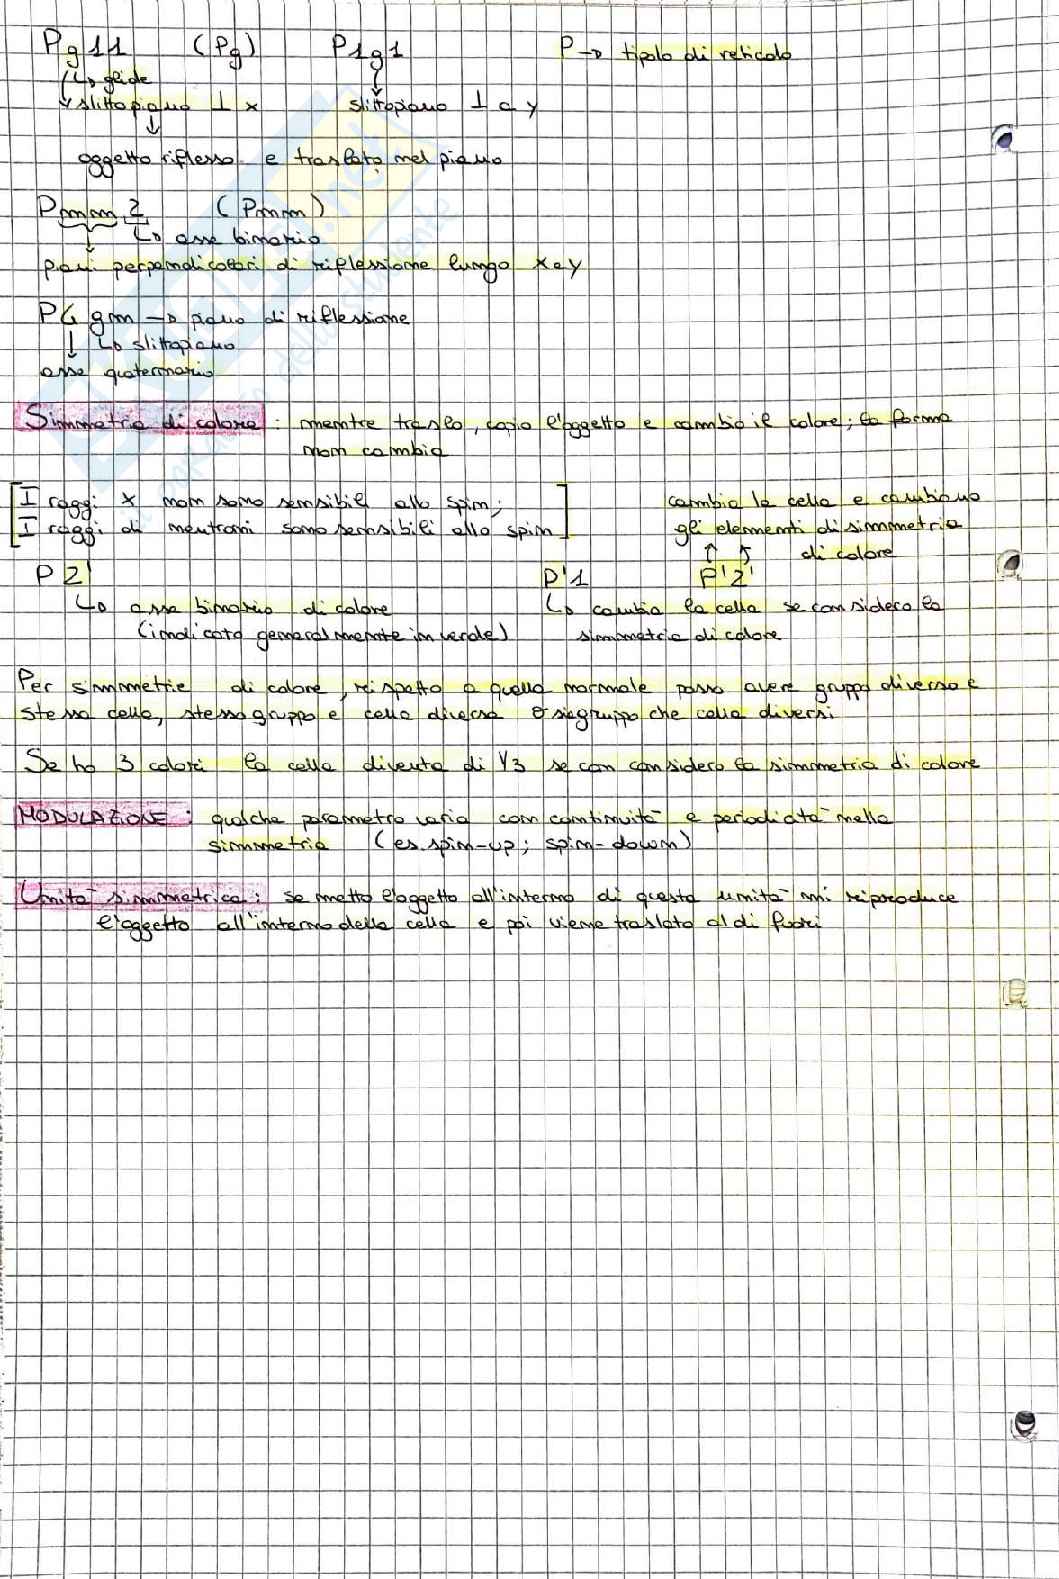 Pg11 (Pg) P1g1 P → tipolo di reticolo
↳ glide
slittopiano ⊥ x slittopiano ⊥ a y
↓
oggetto riflesso e traslato nel piano
Pmm2 (Pmm)
↳ asse binario
piani perpendicolari di riflessione lungo x e y
P4 gm → piano di riflessione
↳ slittopiano
asse quaternario
Simmetria di colore: mentre traslo, copio l'oggetto e cambio il colore; la forma
non cambia
[I raggi x non sono sensibili allo spin; cambia la cella e cambiano
I raggi di neutroni sono sensibili allo spin] gli elementi di simmetria
di colore
P2' P'1 P'2'
↳ asse binario di colore ↳ cambia la cella se considero la
(indicato generalmente in verde) simmetria di colore
Per simmetrie di colore, rispetto a quella normale posso avere gruppo diverso e
stessa cella, stesso gruppo e cella diversa o sia gruppo che cella diversi.
Se ho 3 colori la cella diventa di 1/3 se con considero la simmetria di colore
MODULAZIONE: qualche parametro varia con continuità e periodicità nella
simmetria (es. spin-up; spin-down)
Unità simmetrica: se metto l'oggetto all'interno di questa unità mi riproduce
l'oggetto all'interno della cella e poi viene traslato al di fuori